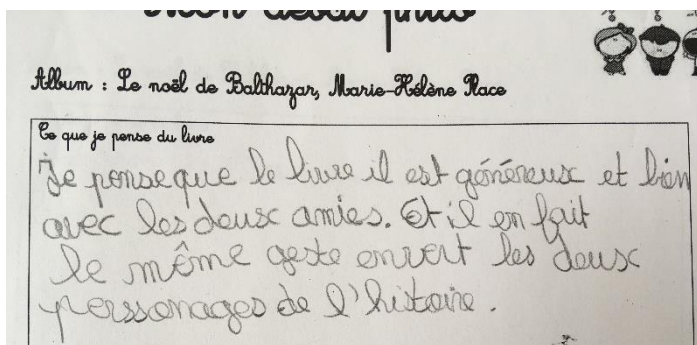 Mon débat philo
Album : Le noël de Balthazar, Marie-Hélène Place
Ce que je pense du livre
Je pense que le livre il est généreux et bien
avec les deux amies. Et il en fait
le même geste envert les deux
perssonages de l'histoire.